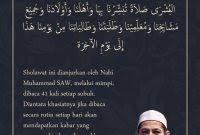 البُشْرَى صَلَاةً تُبَشِّرُنَا بِهَا وَأَهْلَنَا وَأَوْلَادَنَا وَجَمِيْعَ
مَشَايِخِنَا وَمُعَلِّمِيْنَا وَطَلَبَتَنَا وَطَالِبَاتِنَا مِنْ يَوْمِنَا هَذَا
إِلَى يَوْمِ الآخِرَةِ
Sholawat ini dianjurkan oleh Nabi
Muhammad SAW, melalui mimpi,
dibaca 41 kali setiap subuh.
Diantara khasiatnya jika dibaca
secara rutin setiap hari akan
mendapatkan kabar yang